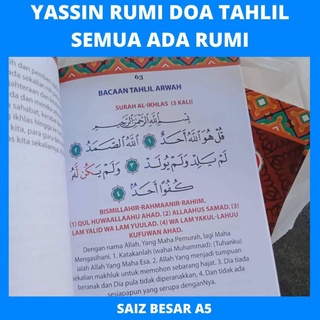 YASSIN RUMI DOA TAHLIL
SEMUA ADA RUMI
63
BACAAN TAHLIL ARWAH
SURAH AL-IKHLAS (3 KALI)
بِسْمِ اللَّهِ الرَّحْمَٰنِ الرَّحِيمِ
قُلْ هُوَ اللَّهُ أَحَدٌ ١ اللَّهُ الصَّمَدُ ٢
لَمْ يَلِدْ وَلَمْ يُولَدْ ٣ وَلَمْ يَكُن لَّهُ
كُفُوًا أَحَدٌ ٤
BISMILLAHIR-RAHMAANIR-RAHIIM.
(1) QUL HUWAALLAAHU AHAD. (2) ALLAAHUS SAMAD. (3)
LAM YALID WA LAM YUULAD. (4) WA LAM YAKUL-LAHUU
KUFUWAN AHAD.
Dengan nama Allah, Yang Maha Pemurah, lagi Maha
Mengasihani. 1. Katakanlah (wahai Muhammad): (Tuhanku)
ialah Allah Yang Maha Esa. 2. Allah Yang menjadi tumpuan
sekalian makhluk untuk memohon sebarang hajat. 3. Dia tiada
beranak dan Dia pula tidak diperanakkan, 4. Dan tidak ada
sesiapapun yang serupa denganNya.
SAIZ BESAR A5